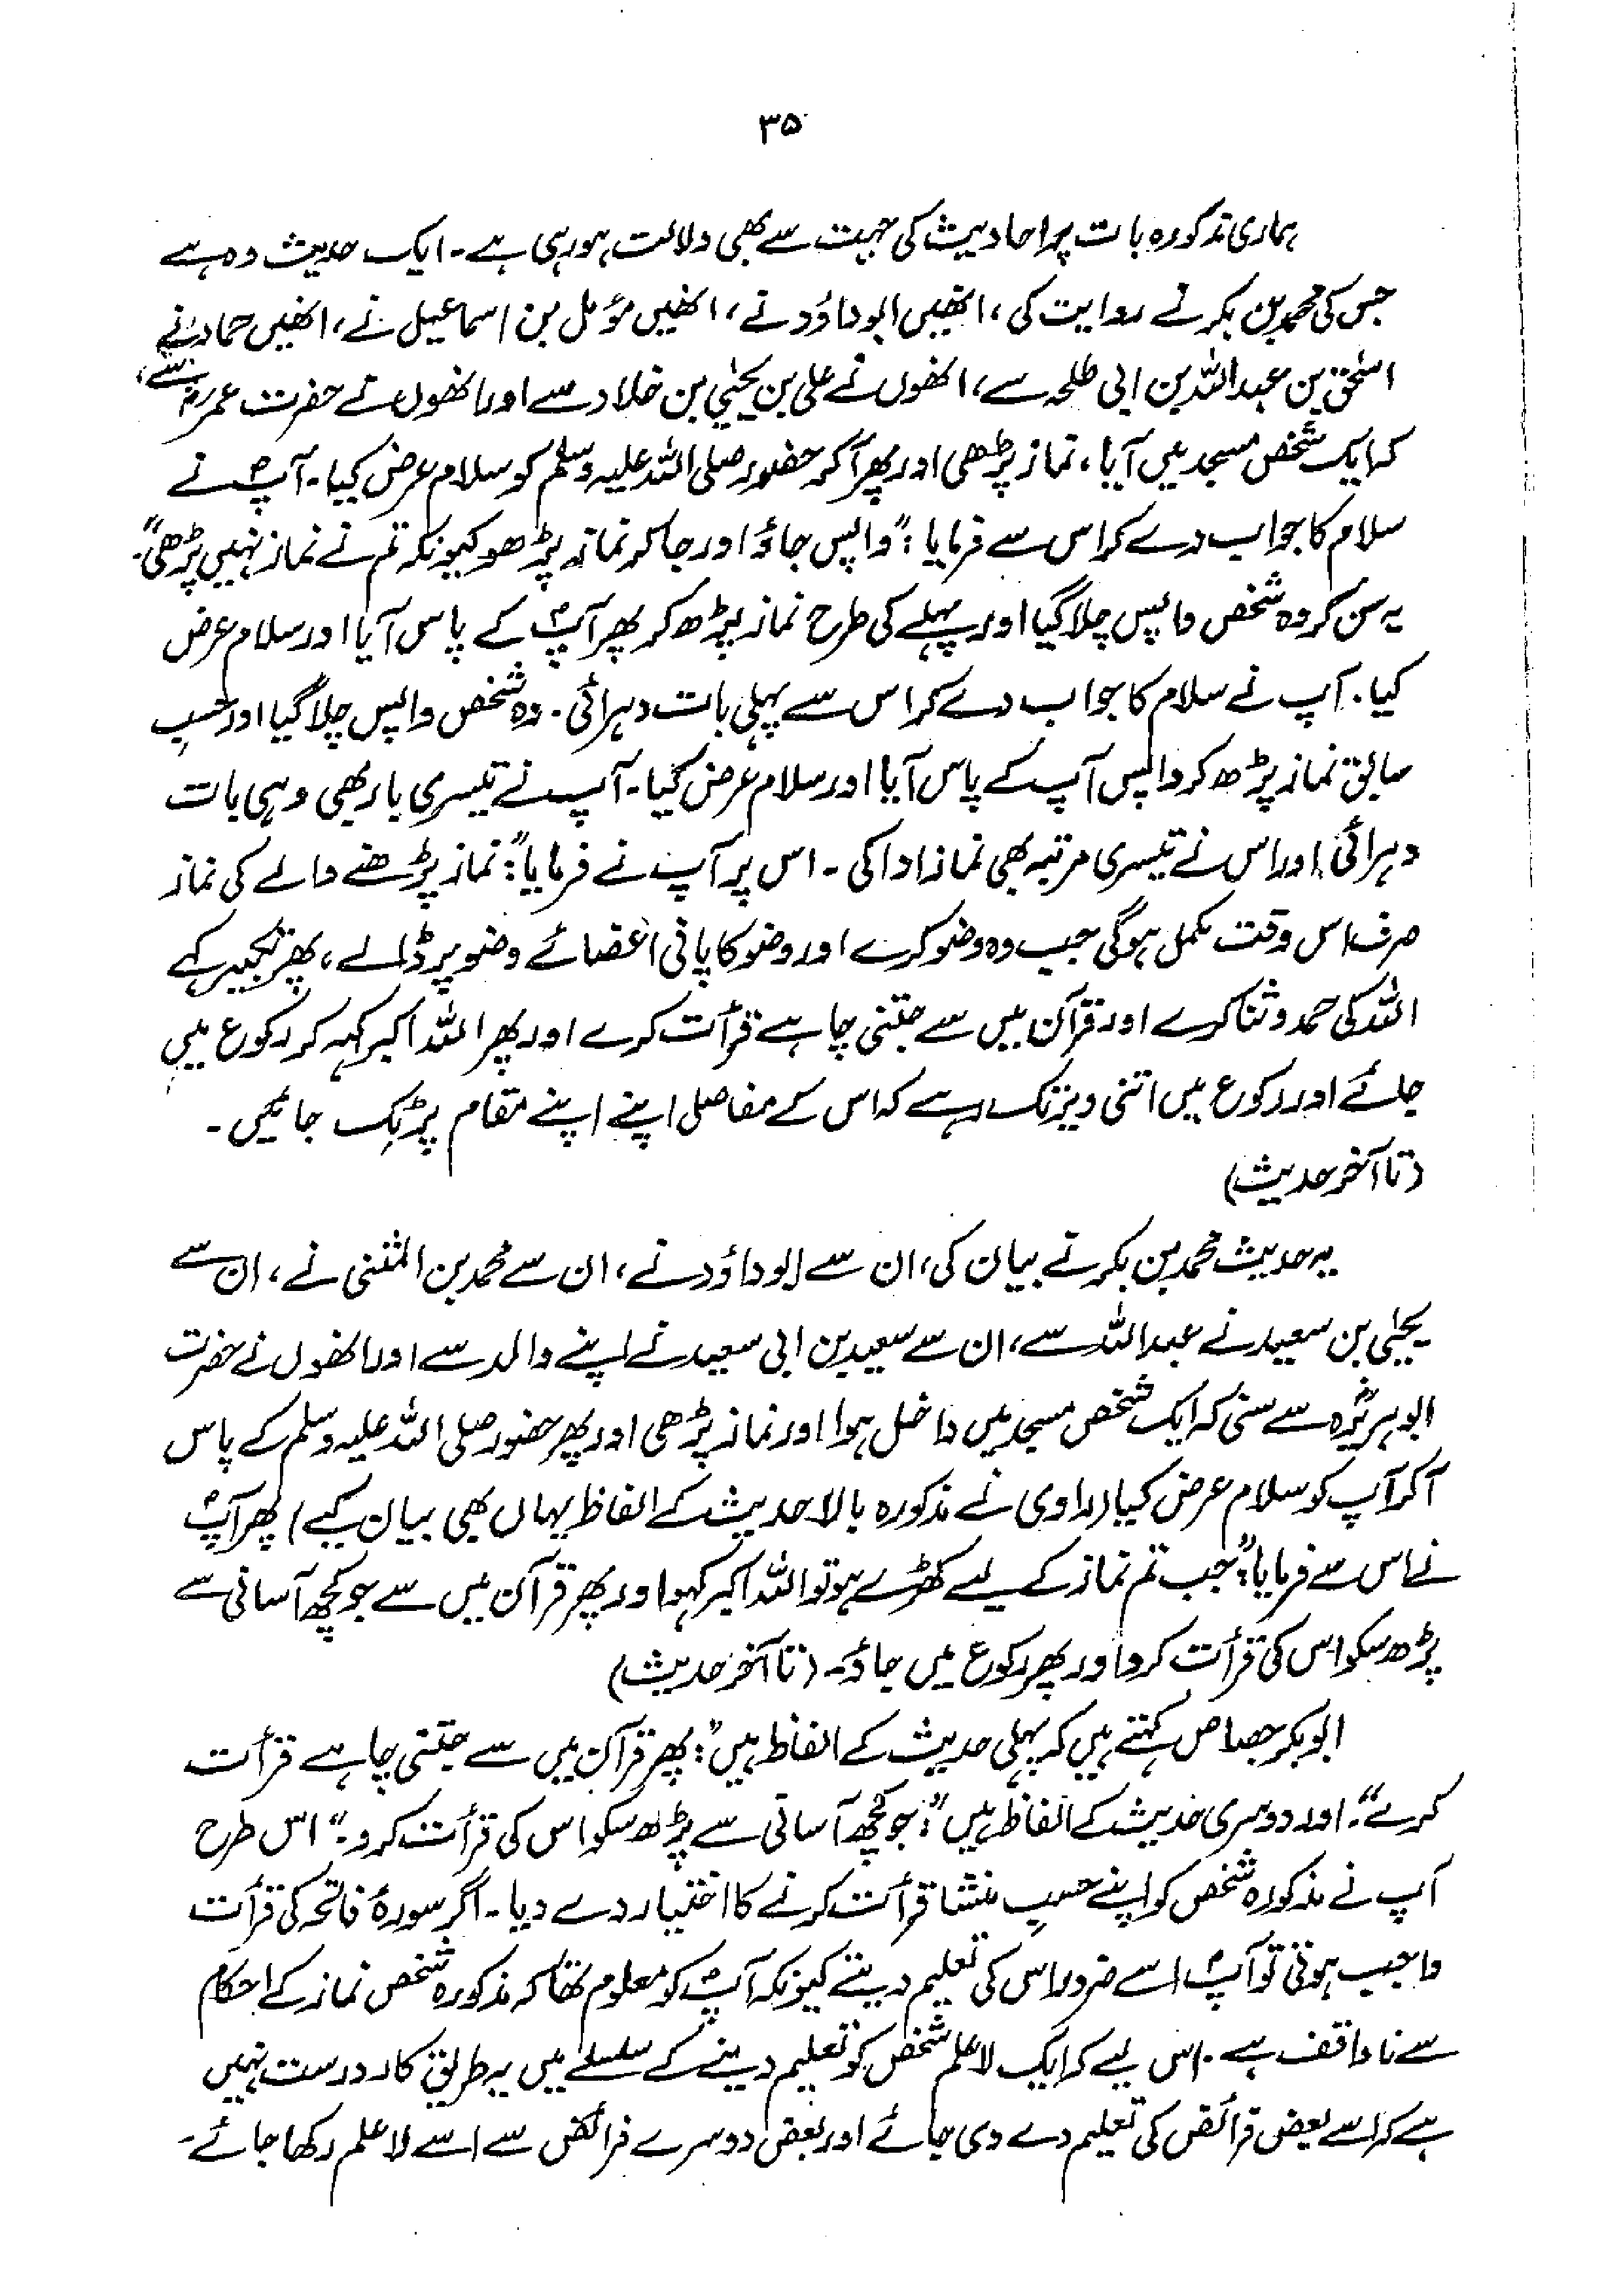 ۳۵
ہماری مذکورہ بات پر احادیث کی جہت سے بھی دلالت ہو رہی ہے۔ ایک حدیث وہ ہے
جس کی محمد بن بکر نے روایت کی، انھیں ابو داؤد نے، انھیں مؤمل بن اسماعیل نے، انھیں حماد نے
اسحٰق بن عبداللہ بن ابی طلحہ سے، انھوں نے علی بن یحیٰی بن خلاد سے اور انھوں نے حضرت عمرؓ سے،
کہ ایک شخص مسجد میں آیا، نماز پڑھی اور پھر آ کر حضور صلی اللہ علیہ وسلم کو سلام عرض کیا۔ آپؐ نے
سلام کا جواب دے کر اس سے فرمایا: "واپس جاؤ اور جا کر نماز پڑھو کیونکہ تم نے نماز نہیں پڑھی"۔
یہ سن کر وہ شخص واپس چلا گیا اور پہلے کی طرح نماز پڑھ کر پھر آپؐ کے پاس آیا اور سلام عرض
کیا۔ آپ نے سلام کا جواب دے کر اس سے پہلی بات دہرائی۔ وہ شخص واپس چلا گیا اور حسبِ
سابق نماز پڑھ کر واپس آپ کے پاس آیا اور سلام عرض کیا۔ آپ نے تیسری بار بھی وہی بات
دہرائی اور اس نے تیسری مرتبہ بھی نماز ادا کی۔ اس پر آپ نے فرمایا: "نماز پڑھنے والے کی نماز
صرف اس وقت مکمل ہوگی جب وہ وضو کرے اور وضو کا پانی اعضائے وضو پر ڈالے، پھر تکبیر کہے
اللہ کی حمد و ثنا کرے اور قرآن میں سے جتنی چاہے قرأت کرے اور پھر اللہ اکبر کہہ کر رکوع میں
جائے اور رکوع میں اتنی دیر تک رہے کہ اس کے مفاصل اپنے اپنے مقام پر ٹک جائیں۔
(تا آخر حدیث)
یہ حدیث محمد بن بکر نے بیان کی، ان سے ابو داؤد نے، ان سے محمد بن المثنیٰ نے، ان سے
یحیٰی بن سعید نے عبداللہ سے، ان سے سعید بن ابی سعید نے اپنے والد سے اور انھوں نے حضرت
ابوہریرہؓ سے سنی کہ ایک شخص مسجد میں داخل ہوا اور نماز پڑھی اور پھر حضور صلی اللہ علیہ وسلم کے پاس
آ کر آپ کو سلام عرض کیا (راوی نے مذکورہ بالا حدیث کے الفاظ یہاں بھی بیان کیے) پھر آپؐ
نے اس سے فرمایا: "جب تم نماز کے لیے کھڑے ہو تو اللہ اکبر کہو اور پھر قرآن میں سے جو کچھ آسانی سے
پڑھ سکو اس کی قرأت کرو اور پھر رکوع میں جاؤ۔ (تا آخر حدیث)
ابوبکر جصاص کہتے ہیں کہ پہلی حدیث کے الفاظ ہیں: "پھر قرآن میں سے جتنی چاہے قرأت
کرے"۔ اور دوسری حدیث کے الفاظ ہیں: "جو کچھ آسانی سے پڑھ سکو اس کی قرأت کرو۔" اس طرح
آپ نے مذکورہ شخص کو اپنے حسبِ منشا قرأت کرنے کا اختیار دے دیا۔ اگر سورۂ فاتحہ کی قرأت
واجب ہوتی تو آپؐ اسے ضرور اس کی تعلیم دیتے کیونکہ آپؐ کو معلوم تھا کہ مذکورہ شخص نماز کے احکام
سے ناواقف ہے۔ اس لیے کہ ایک لاعلم شخص کو تعلیم دینے کے سلسلے میں یہ طریق کار درست نہیں
ہے کہ اسے بعض فرائض کی تعلیم دے دی جائے اور بعض دوسرے فرائض سے اسے لاعلم رکھا جائے۔